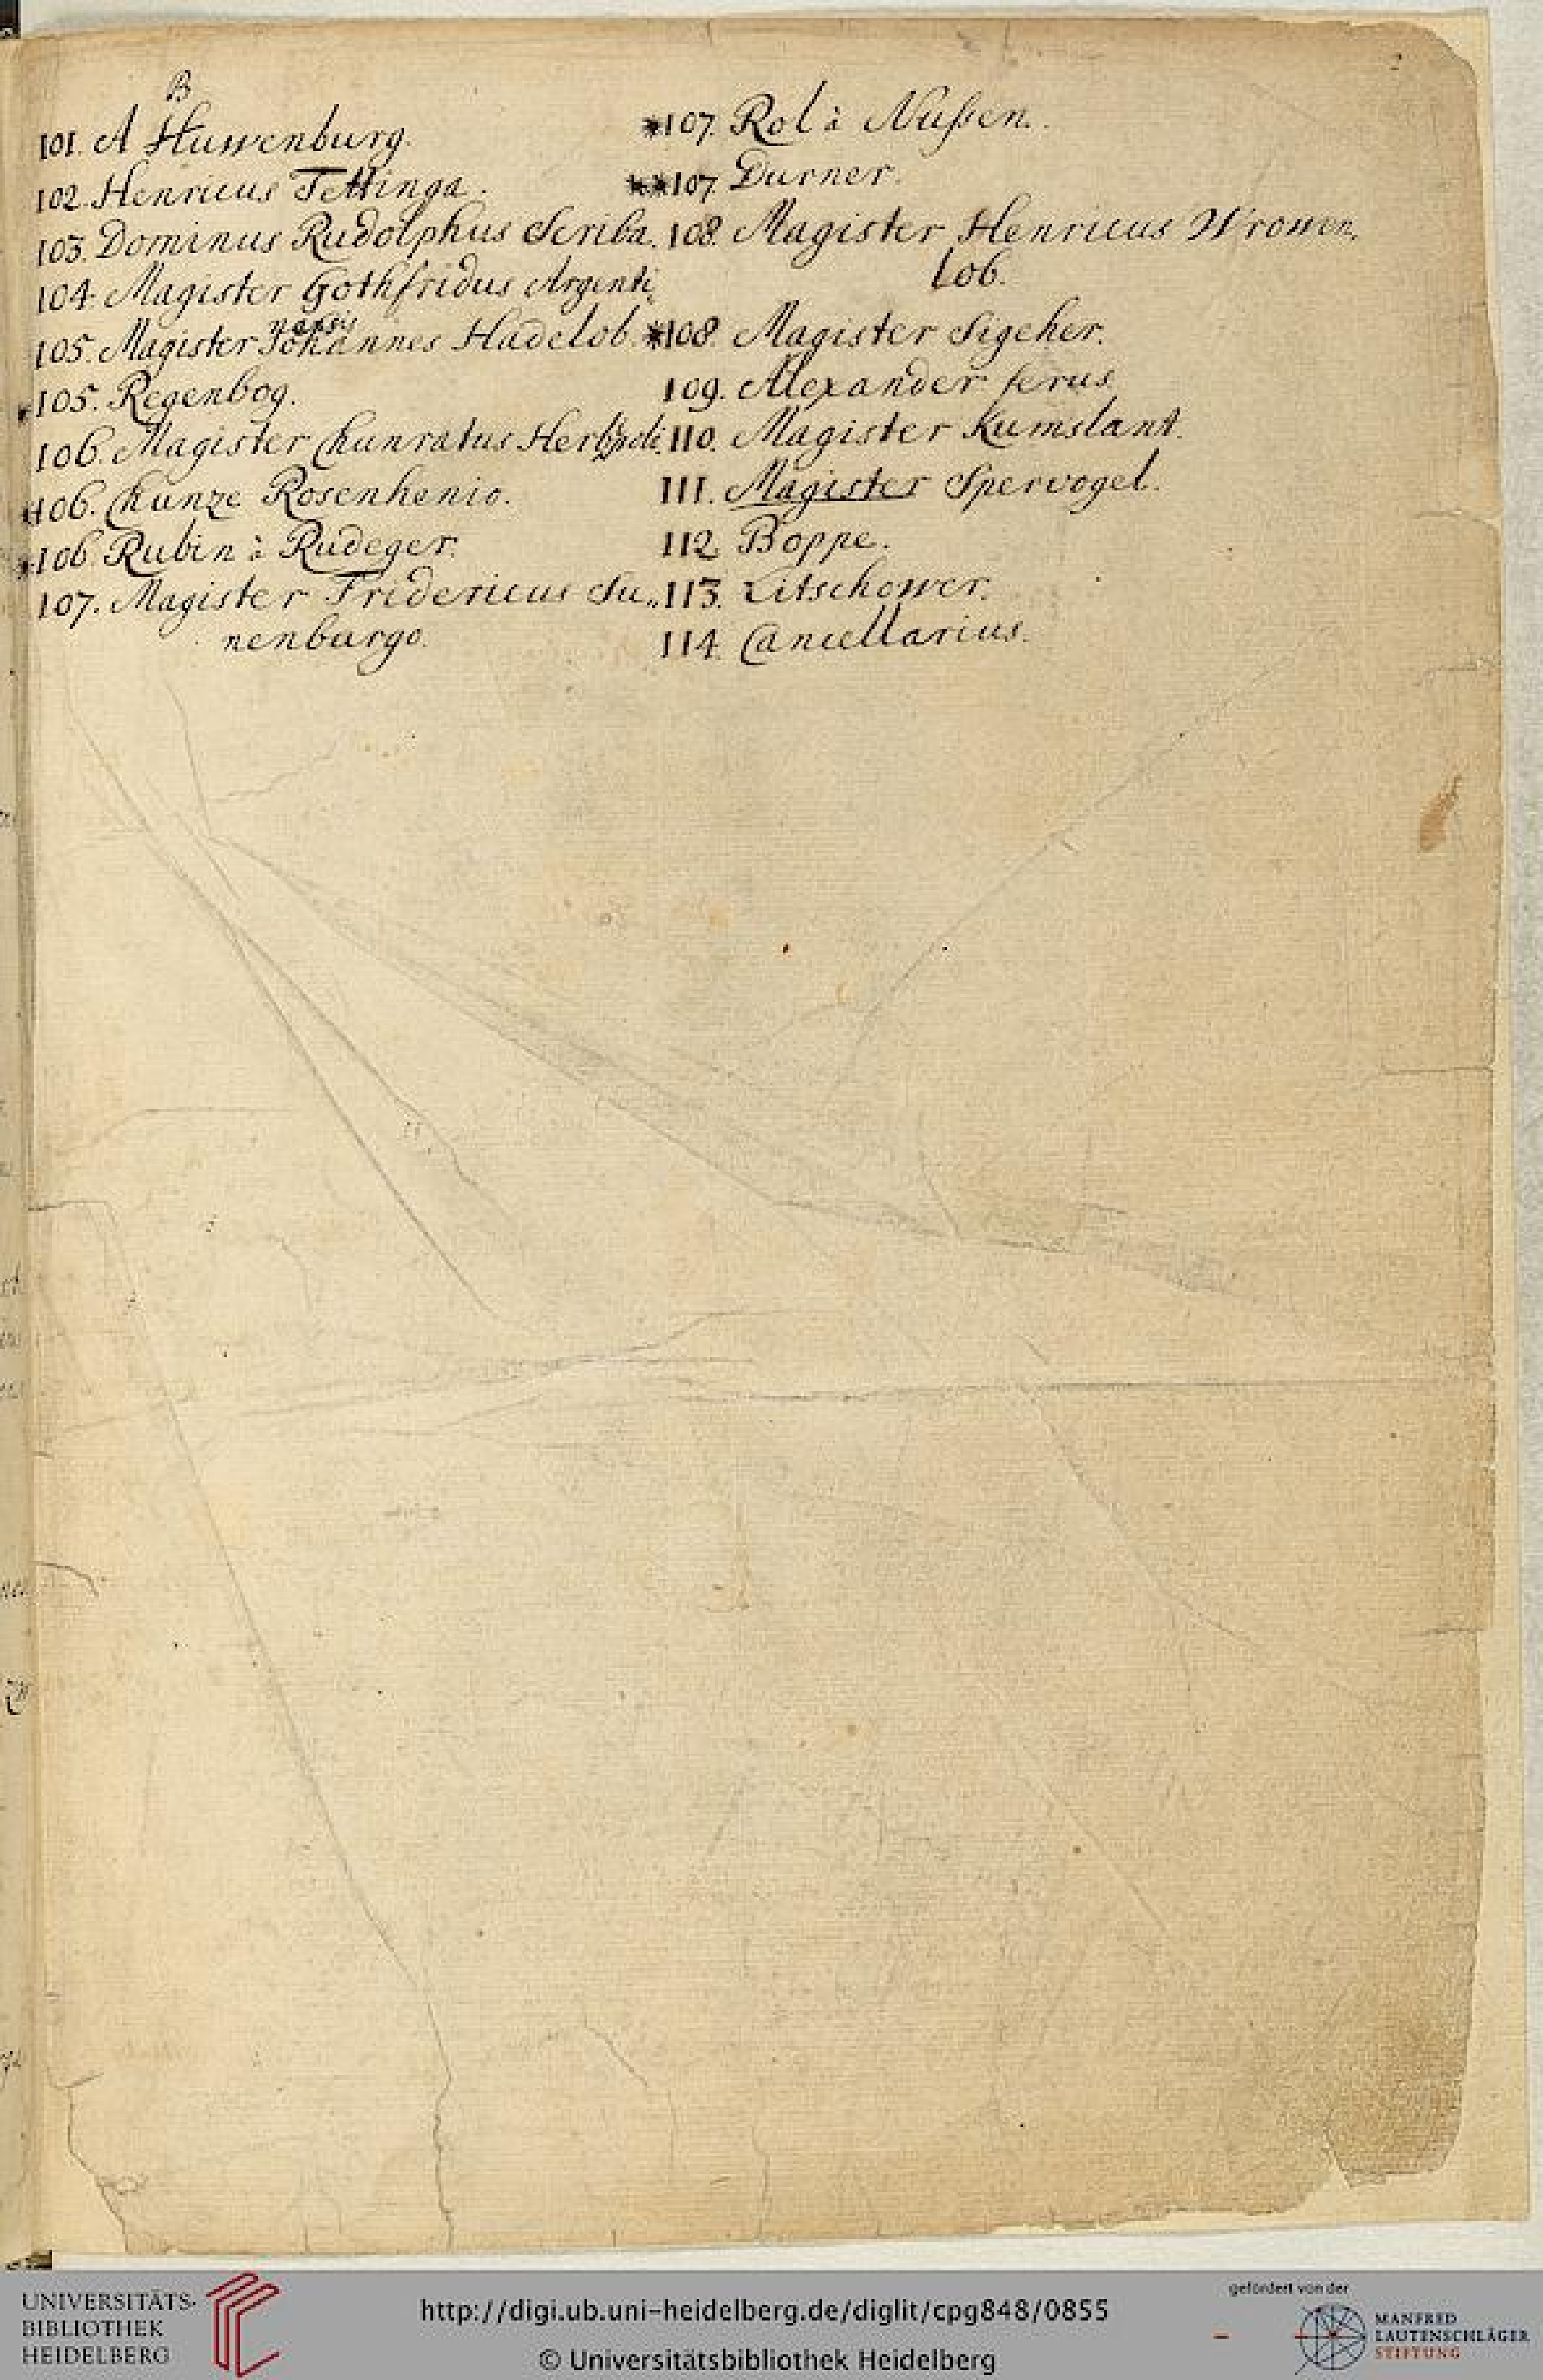 B
101. A Huwenburg.
102. Henricus Tettinga.
103. Dominus Rudolphus Scriba.
104. Magister Gothfridus Argenti
nensis
105. Magister Johannes Hadelob.
*105. Regenbog.
106. Magister Chunratus Herbipoli.
*106. Chunze Rosenhenio.
*106 Rubin à Rudeger.
107. Magister Fridericus Su„
nenburgo.
*107. Rol à Nussen.
**107 Durner.
108. Magister Henricus Wrowen.
Lob.
*108. Magister Sigeher.
109. Alexander ferus
110. Magister Rumslant.
111. Magister Spervogel.
112. Boppe.
113. Litschower.
114. Cancellarius.
UNIVERSITÄTS-
BIBLIOTHEK
HEIDELBERG
http://digi.ub.uni-heidelberg.de/diglit/cpg848/0855
© Universitätsbibliothek Heidelberg
gefördert von der
MANFRED
LAUTENSCHLÄGER
STIFTUNG